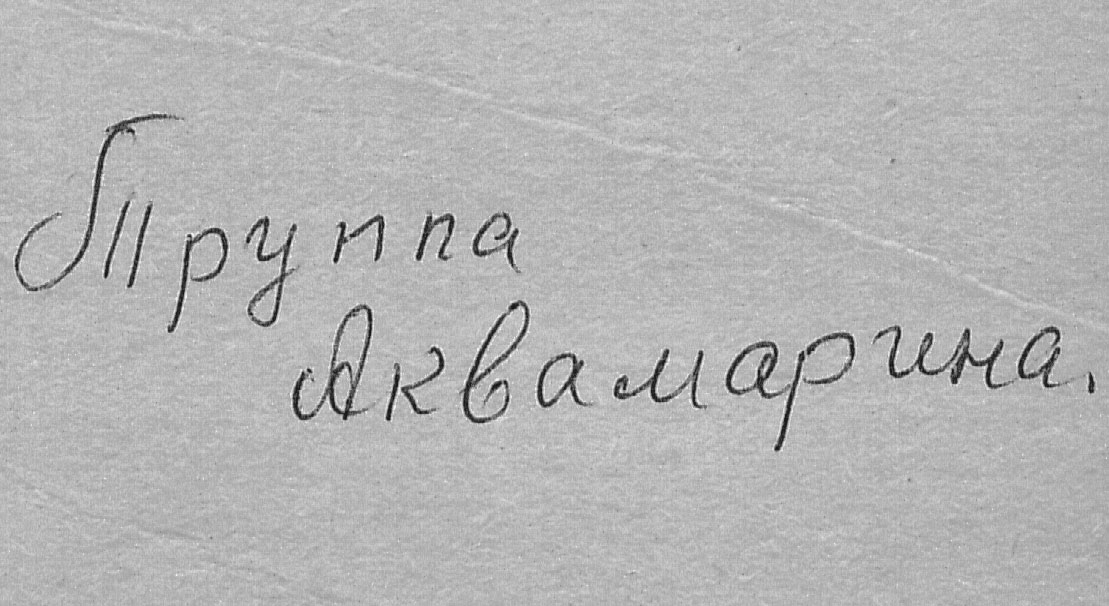 Труппа
Аквамарина.